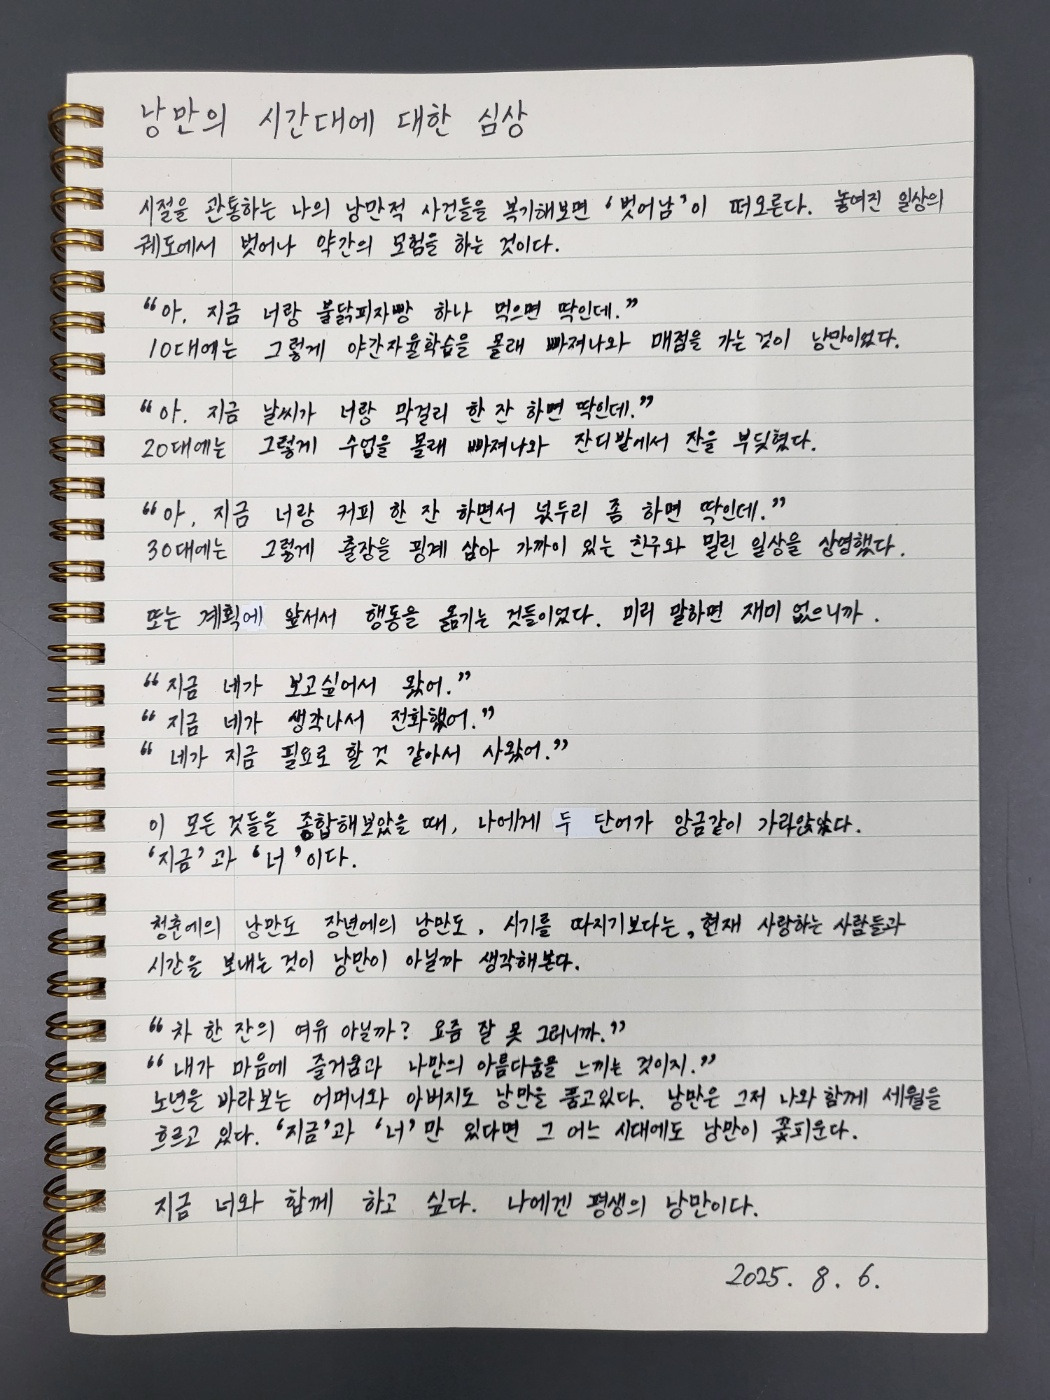 낭만의 시간대에 대한 심상
시절을 관통하는 나의 낭만적 사건들을 복기해보면 ‘벗어남’이 떠오른다. 놓여진 일상의
궤도에서 벗어나 약간의 모험을 하는 것이다.
“아, 지금 너랑 불닭피자빵 하나 먹으면 딱인데.”
10대에는 그렇게 야간자율학습을 몰래 빠져나와 매점을 가는 것이 낭만이었다.
“아, 지금 날씨가 너랑 막걸리 한 잔 하면 딱인데.”
20대에는 그렇게 수업을 몰래 빠져나와 잔디밭에서 잔을 부딪혔다.
“아, 지금 너랑 커피 한 잔 하면서 넋두리 좀 하면 딱인데.”
30대에는 그렇게 출장을 핑계 삼아 가까이 있는 친구와 밀린 일상을 상영했다.
또는 계획에 앞서서 행동을 옮기는 것들이었다. 미리 말하면 재미 없으니까.
“지금 네가 보고싶어서 왔어.”
“지금 네가 생각나서 전화했어.”
“네가 지금 필요로 할 것 같아서 사왔어.”
이 모든 것들을 종합해보았을 때, 나에게 두 단어가 앙금같이 가라앉았다.
‘지금’과 ‘너’이다.
청춘에의 낭만도 장년에의 낭만도, 시기를 따지기보다는, 현재 사랑하는 사람들과
시간을 보내는 것이 낭만이 아닐까 생각해본다.
“차 한 잔의 여유 아닐까? 요즘 잘 못 그러니까.”
“내가 마음에 즐거움과 나만의 아름다움을 느끼는 것이지.”
노년을 바라보는 어머니와 아버지도 낭만을 품고있다. 낭만은 그저 나와 함께 세월을
흐르고 있다. ‘지금’과 ‘너’만 있다면 그 어느 시대에도 낭만이 꽃피운다.
지금 너와 함께 하고 싶다. 나에겐 평생의 낭만이다.
2025. 8. 6.